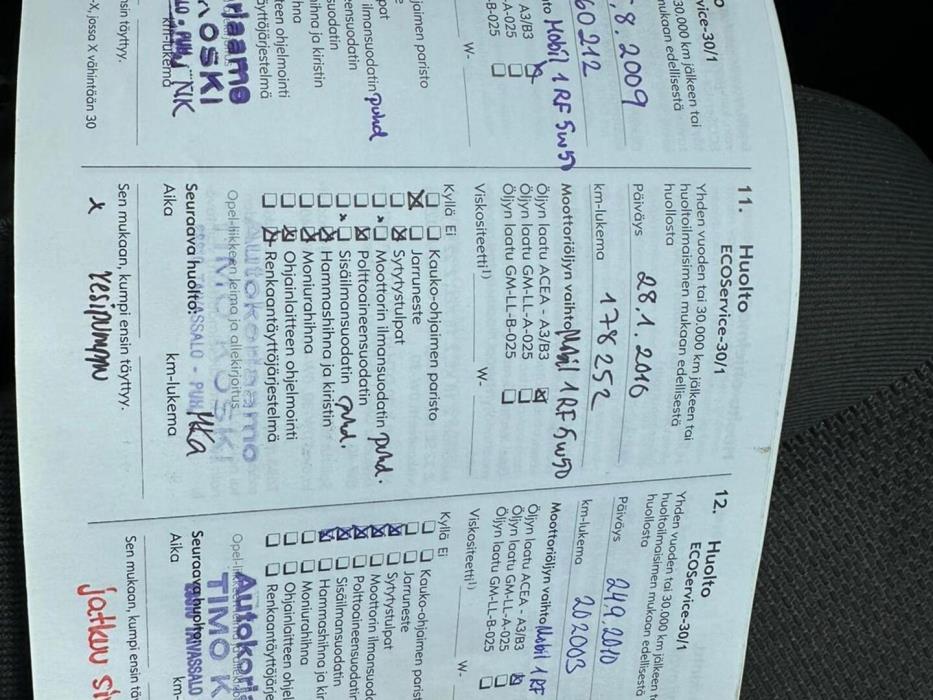 vice-30/1
30.000 km jälkeen tai
mukaan edellisestä
.8.2009
60212
Mobil 1 RF 5w50
A3/B3
-A-025
-B-025
W-
jaimen paristo
ilmansuodatin puhd
ensuodatin
suodatin
ihna ja kiristin
hna
teen ohjelmointi
äyttöjärjestelmä
NK
km-lukema
nsin täyttyy.
-X, jossa X vähintään 30
11. Huolto
ECOService-30/1
Yhden vuoden tai 30.000 km jälkeen tai
huoltoilmaisimen mukaan edellisestä
huollosta
Päiväys 28.1.2010
km-lukema 178252
Moottoriöljyn vaihto Mobil 1 RF 5w50
Öljyn laatu ACEA - A3/B3
Öljyn laatu GM-LL-A-025
Öljyn laatu GM-LL-B-025
Viskositeetti1) W-
Kyllä Ei
Kauko-ohjaimen paristo
Jarruneste
Sytytystulpat
Moottorin ilmansuodatin puhd.
Polttoaineensuodatin
Sisäilmansuodatin puhd.
Hammashihna ja kiristin
Moniurahihna
Ohjainlaitteen ohjelmointi
Renkaantäyttöjärjestelmä
Autokorjaamo
TIMO KOSKI
Opel-liikkeen leima ja allekirjoitus
Seuraava huolto:
Aika km-lukema
Sen mukaan, kumpi ensin täyttyy.
x vesipumppu
12. Huolto
ECOService-30/1
Yhden vuoden tai 30.000 km jälkeen t
huoltoilmaisimen mukaan edellisestä
huollosta
Päiväys 24.9.2010
km-lukema 202003
Moottoriöljyn vaihto Mobil 1 RF
Öljyn laatu ACEA - A3/B3
Öljyn laatu GM-LL-A-025
Öljyn laatu GM-LL-B-025
Viskositeetti1) W-
Kyllä Ei
Kauko-ohjaimen parist
Jarruneste
Sytytystulpat
Moottorin ilmansuod
Polttoaineensuodatin
Sisäilmansuodatin
Hammashihna ja kir
Moniurahihna
Ohjainlaitteen ohjel
Renkaantäyttöjärje
Autokorj
TIMO K
Seuraava huolto:
Aika km-
Sen mukaan, kumpi ensin tä
jatkuu si